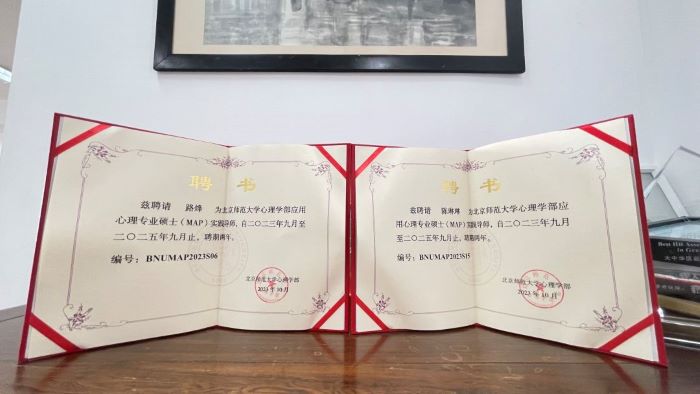 聘 书
兹聘请 路烽 为北京师范大学心理学部应用
心理专业硕士（MAP）实践导师，自二〇二三年九月至
二〇二五年九月止，聘期两年。
编号：BNUMAP2023S06
北京师范大学心理学部
2023年10月
聘 书
兹聘请 陈琳琳 为北京师范大学心理学部应
用心理专业硕士（MAP）实践导师，自二〇二三年九月
至二〇二五年九月止，聘期两年。
编号：BNUMAP2023S15
北京师范大学心理学部
2023年10月
Best HR
in Gre
大中华区